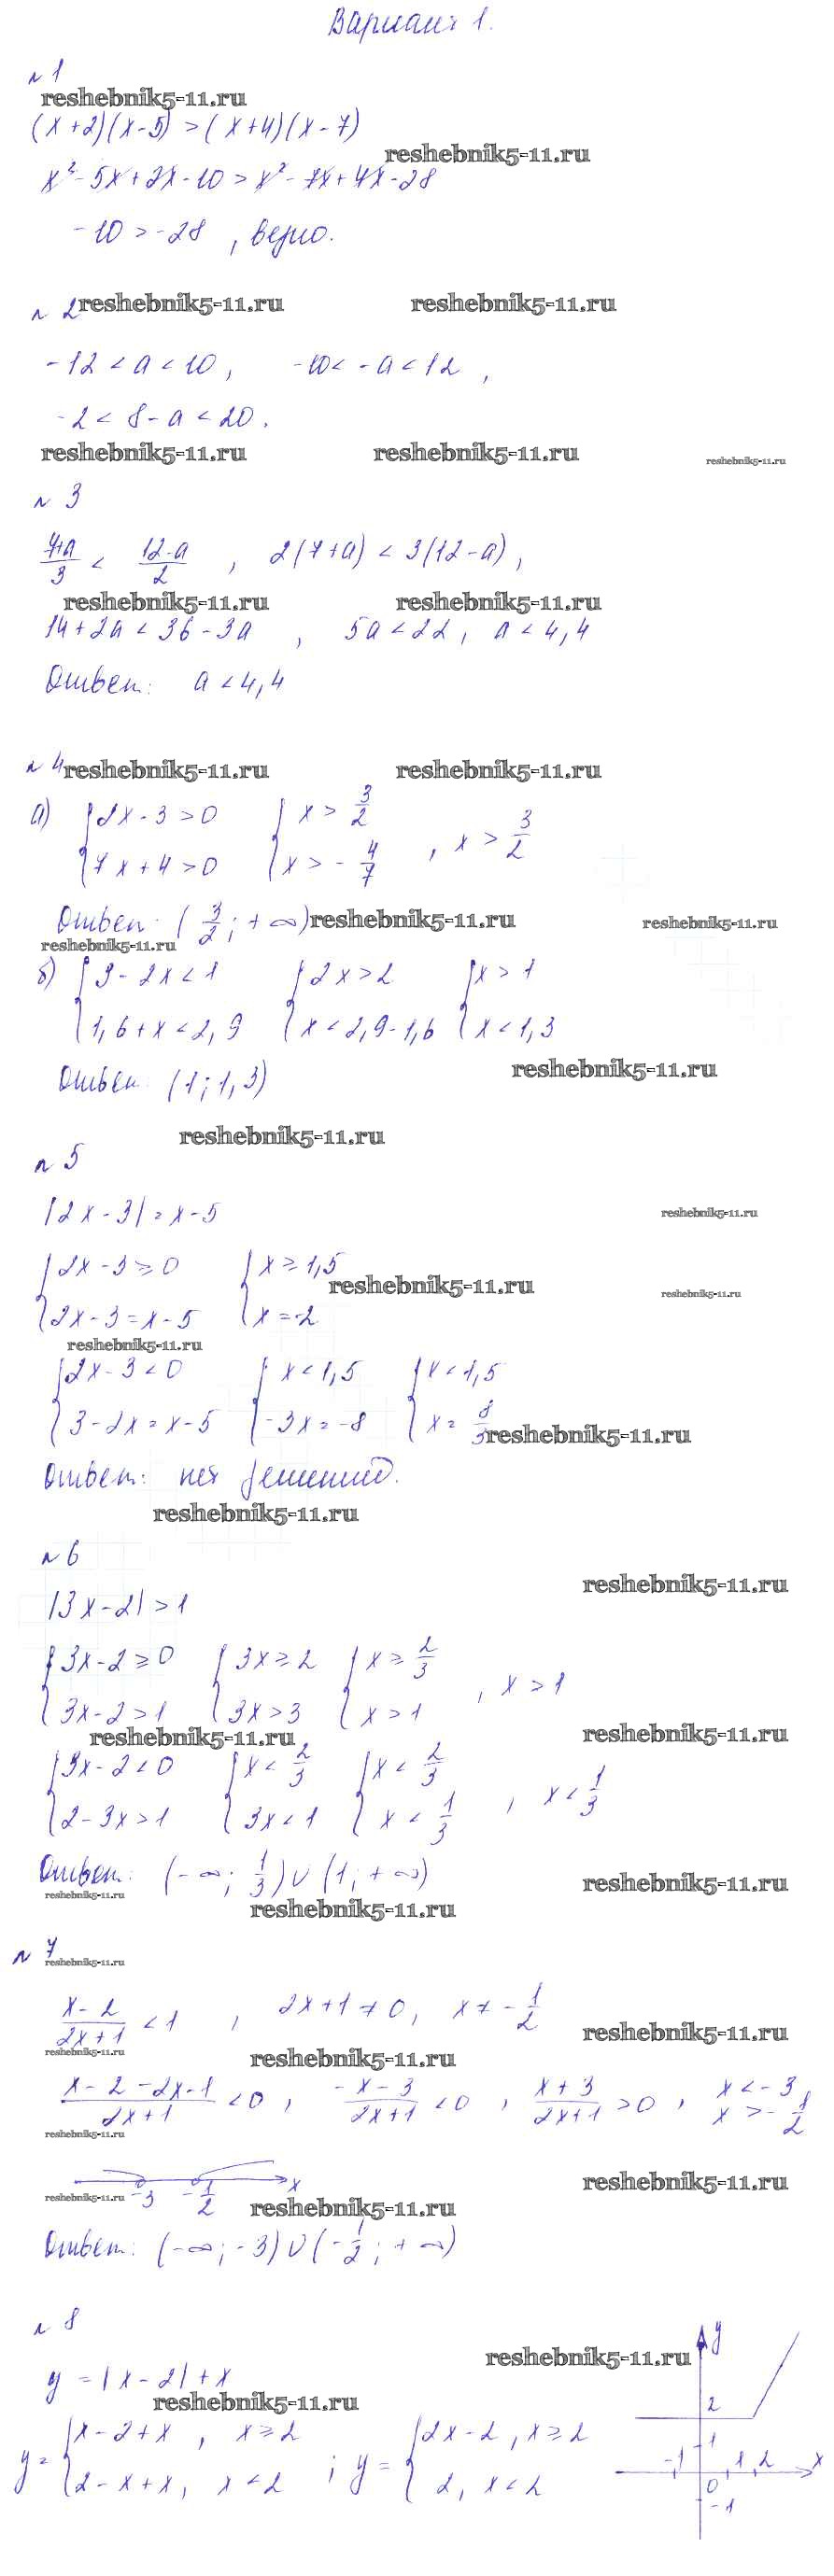 Вариант 1.
№ 1
reshebnik5-11.ru
(x+2)(x-5) > (x+4)(x-7)
reshebnik5-11.ru
x² - 5x + 2x - 10 > x² - 7x + 4x - 28
-10 > -28 , верно.
№ 2 reshebnik5-11.ru reshebnik5-11.ru
-12 < a < 10 , -10 < -a < 12 ,
-2 < 8 - a < 20 .
reshebnik5-11.ru reshebnik5-11.ru reshebnik5-11.ru
№ 3
(7+a)/3 < (12-a)/2 , 2(7+a) < 3(12-a) ,
reshebnik5-11.ru reshebnik5-11.ru
14 + 2a < 36 - 3a , 5a < 22 , a < 4,4
Ответ: a < 4,4
№ 4 reshebnik5-11.ru reshebnik5-11.ru
а) { 2x - 3 > 0 { x > 3/2
{ 7x + 4 > 0 { x > - 4/7 , x > 3/2
Ответ: (3/2; +∞) reshebnik5-11.ru reshebnik5-11.ru
reshebnik5-11.ru
б) { 3 - 2x < 1 { 2x > 2 { x > 1
{ 1,6 + x < 2,9 { x < 2,9 - 1,6 { x < 1,3
Ответ: (1; 1,3) reshebnik5-11.ru
reshebnik5-11.ru
№ 5
|2x - 3| = x - 5 reshebnik5-11.ru
{ 2x - 3 ≥ 0 { x ≥ 1,5 reshebnik5-11.ru reshebnik5-11.ru
{ 2x - 3 = x - 5 { x = -2
reshebnik5-11.ru
{ 2x - 3 < 0 { x < 1,5 { x < 1,5
{ 3 - 2x = x - 5 { -3x = -8 { x = 8/3 reshebnik5-11.ru
Ответ: нет решений.
reshebnik5-11.ru
№ 6
reshebnik5-11.ru
|3x - 2| > 1
{ 3x - 2 ≥ 0 { 3x ≥ 2 { x ≥ 2/3
{ 3x - 2 > 1 { 3x > 3 { x > 1 , x > 1
reshebnik5-11.ru reshebnik5-11.ru
{ 3x - 2 < 0 { x < 2/3 { x < 2/3
{ 2 - 3x > 1 { 3x < 1 { x < 1/3 , x < 1/3
Ответ: (-∞; 1/3) ∪ (1; +∞) reshebnik5-11.ru
reshebnik5-11.ru reshebnik5-11.ru
№ 7
reshebnik5-11.ru
(x-2)/(2x+1) < 1 , 2x + 1 ≠ 0 , x ≠ - 1/2
reshebnik5-11.ru
reshebnik5-11.ru reshebnik5-11.ru
(x-2-2x-1)/(2x+1) < 0 , (-x-3)/(2x+1) < 0 , (x+3)/(2x+1) > 0 , x < -3
x > - 1/2
reshebnik5-11.ru
reshebnik5-11.ru
-3 - 1/2 x
reshebnik5-11.ru reshebnik5-11.ru
Ответ: (-∞; -3) ∪ (- 1/2; +∞)
№ 8
y
reshebnik5-11.ru
y = |x - 2| + x
reshebnik5-11.ru
2
y = { x - 2 + x , x ≥ 2 ; y = { 2x - 2 , x ≥ 2
{ 2 - x + x , x < 2 { 2 , x < 2
1
-1 1 2 x
0
-1